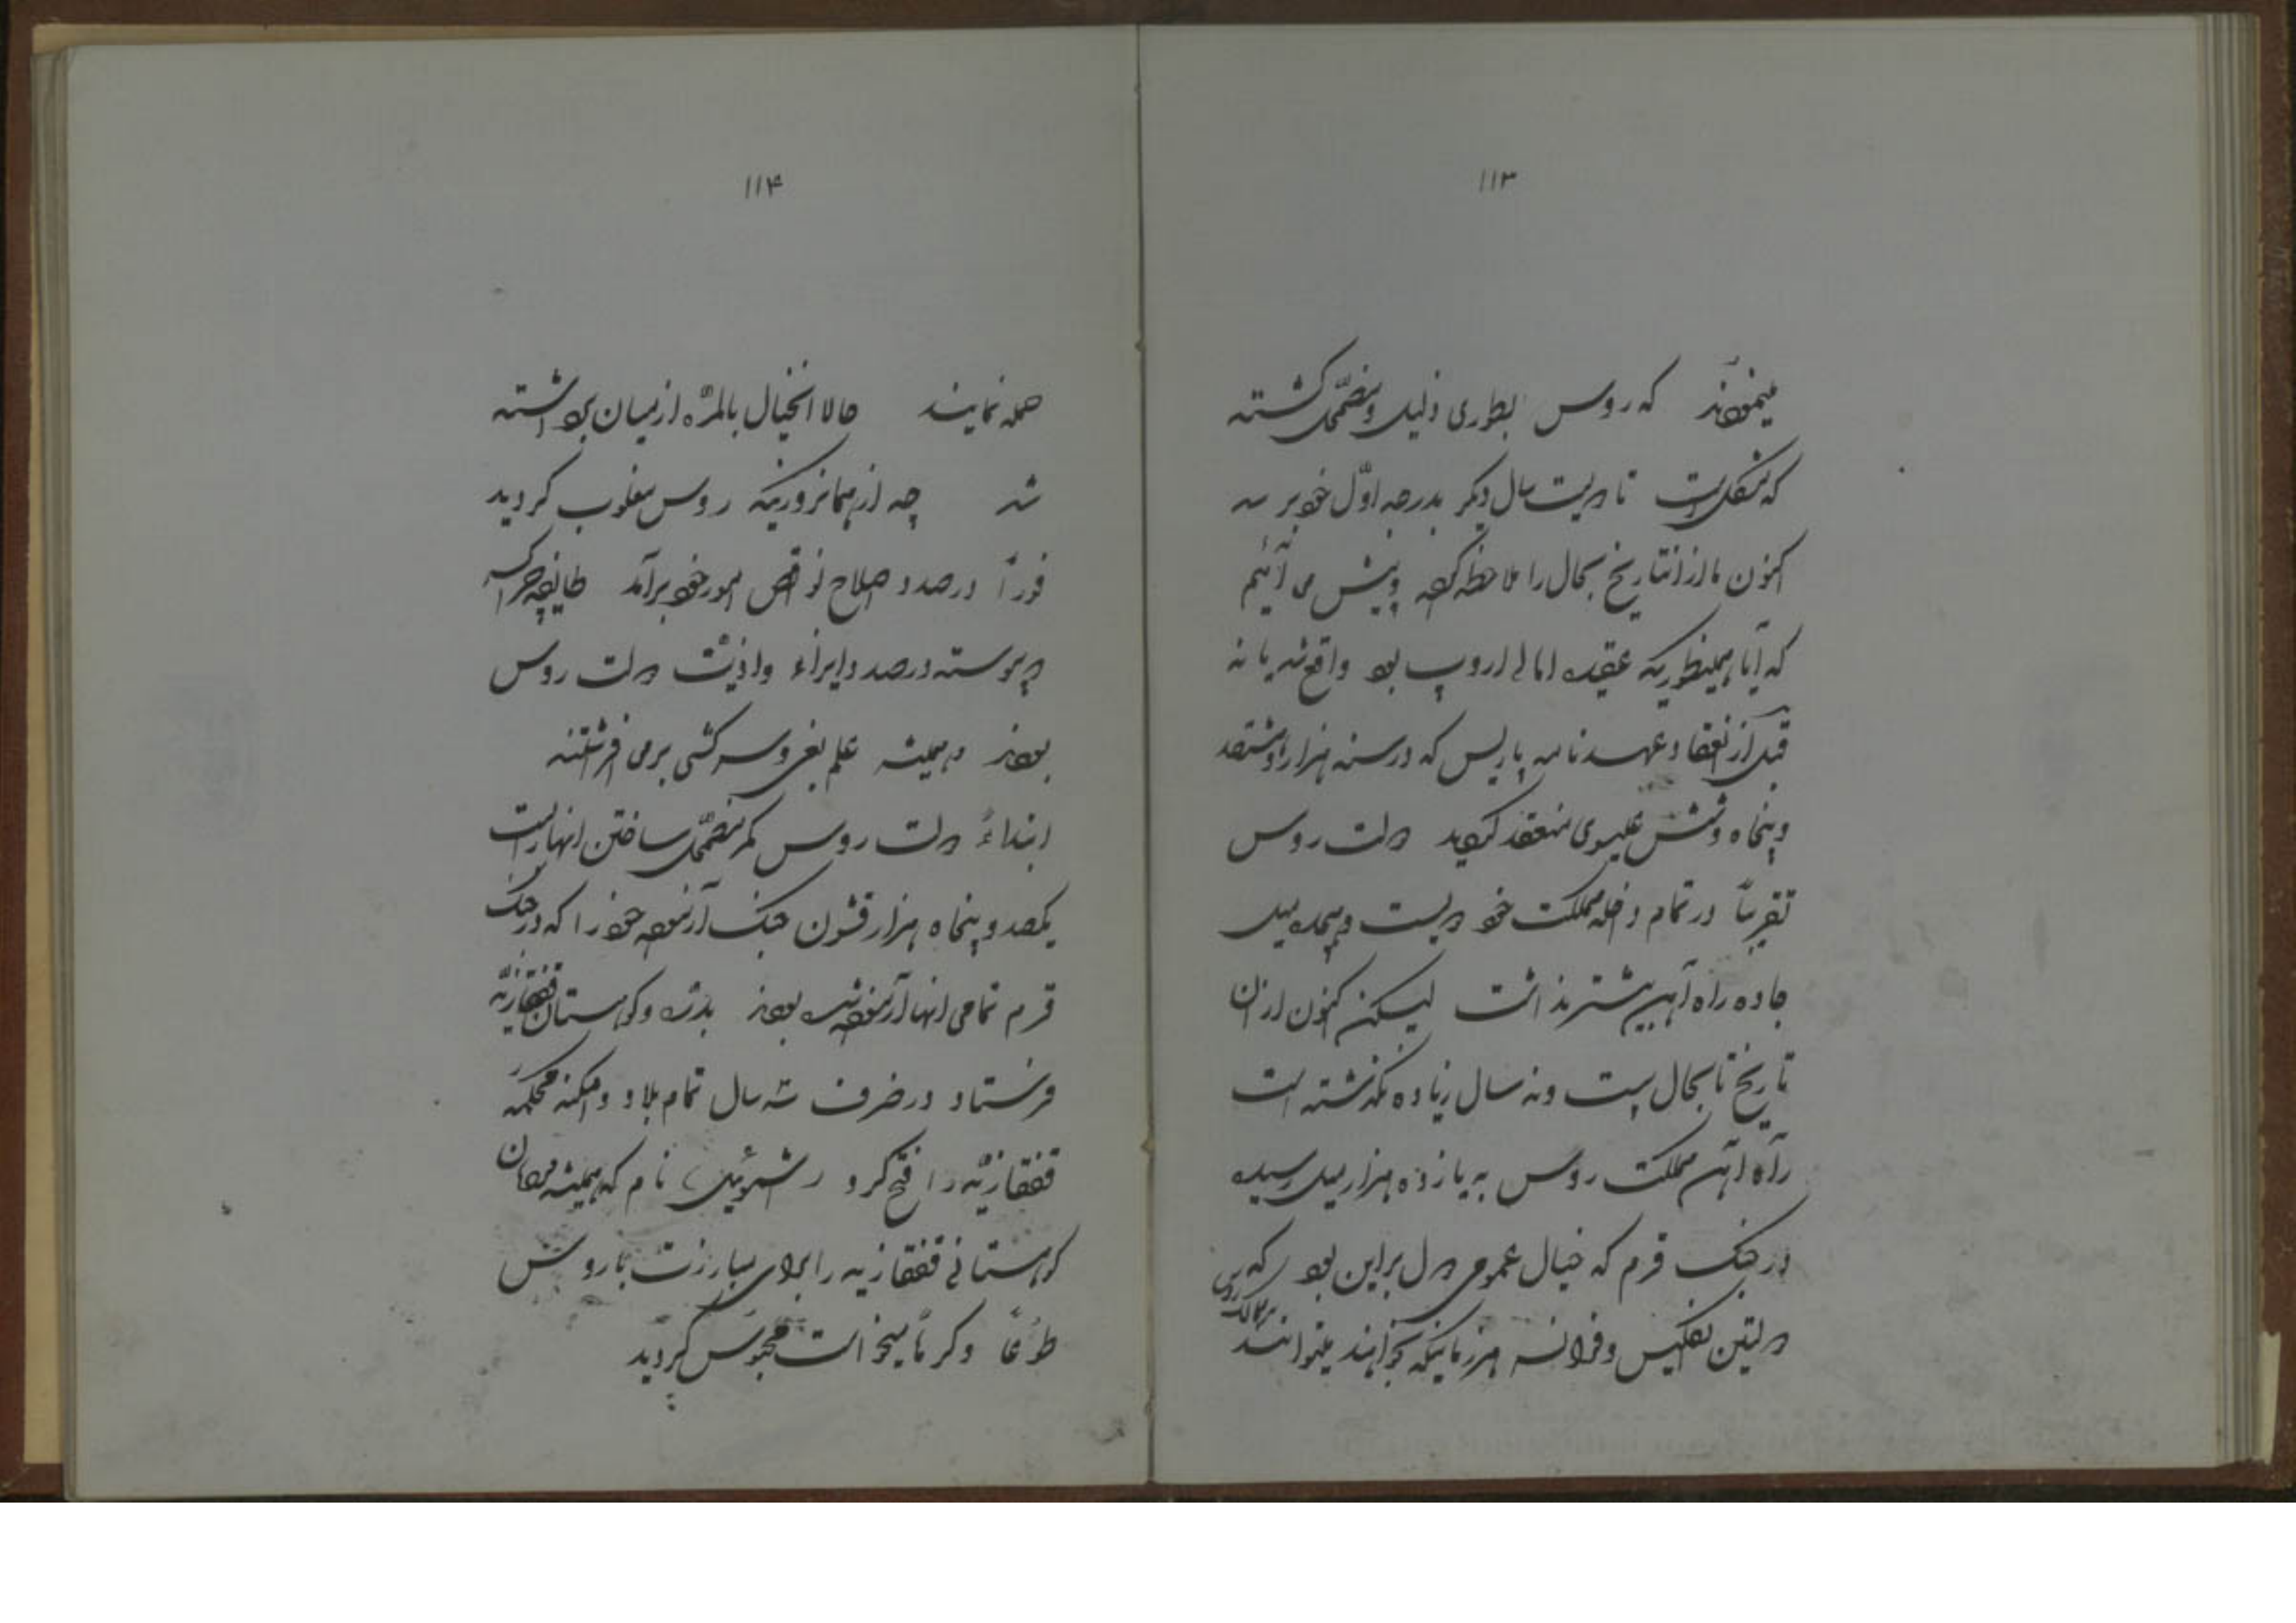 ۱۱۳
مینمودند که روس بطوری ذلیل و مضمحل گشته
که مشکل است تا دویست سال دیگر بدرجه اوّل خود برسد
اکنون ما از انتاریخ بحال را ملاحظه کرده و پیش می آئیم
که آیا همینطوریکه عقیده اهالی اروپ بود واقع شد یا نه
قبل از انعقاد عهدنامه پاریس که در سنه هزار و هشتصد
و پنجاه و شش عیسوی منعقد گردید دولت روس
تقریباً در تمام داخله مملکت خود دویست و میل
جاده راه آهن بیشتر نداشت لیکن اکنون از ان
تاریخ تا بحال بیست و نه سال زیاده نگذشته است
راه آهن مملکت روس به یازده هزار میل رسیده
در جنک قرم که خیال عموم دول براین بود که
دولتین انگلیس و فرانسه هرزمانیکه بخواهند میتوانند بر ممالک روس
۱۱۴
حمله نمایند حالا انخیال بالمرّه از میان برداشته
شد چه از همانروزیکه روس مغلوب گردید
فوراً درصدد اصلاح نواقص امور خود برآمد طایفه چراکسه
پیوسته درصدد ایزاء و اذیّت دولت روس
بودند و همیشه علم بغی و سرکشی برمی افراشتند
ابتداءً دولت روس کمر مضمحل ساختن انها بست
یکصد و پنجاه هزار قشون جنک آزموده خود را که در جنک
قرم تمامی انها آزموده شده بودند بدره و کوهستان قفقازیّه
فرستاد در ظرف سه سال تمام بلاد و امکنه محکمه
قفقازیّه را فتح کرد نام که همیشه مردمان
کوهستانی قفقازیه را برای مبارزت با روس
طوعاً و کرهاً میخواست محبوس گردید